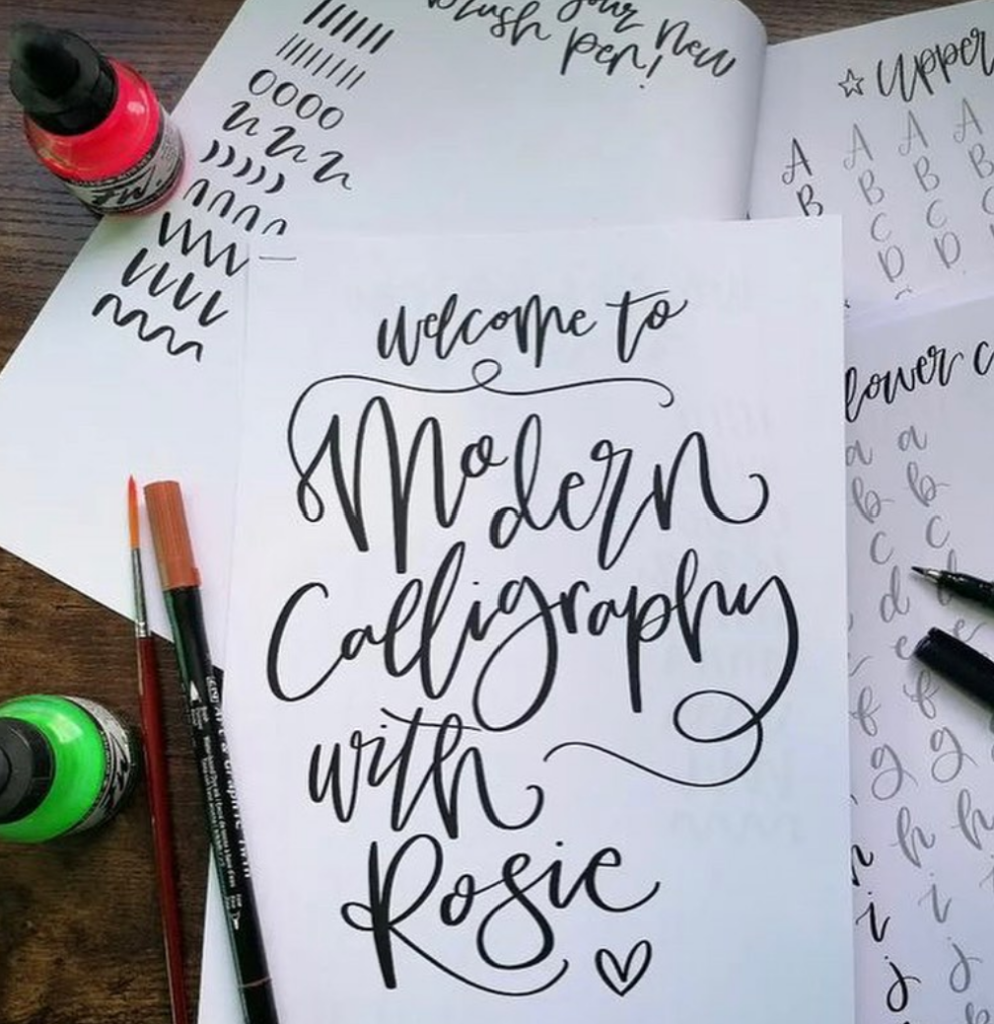 your new
brush pen!
☆ Upper
A A A A
B B B B
C C
D D
welcome to
Modern
Calligraphy
with
Rosie
lower c
a a
b b
c c
d d
e e
f f
g g
h h h
i i
j j